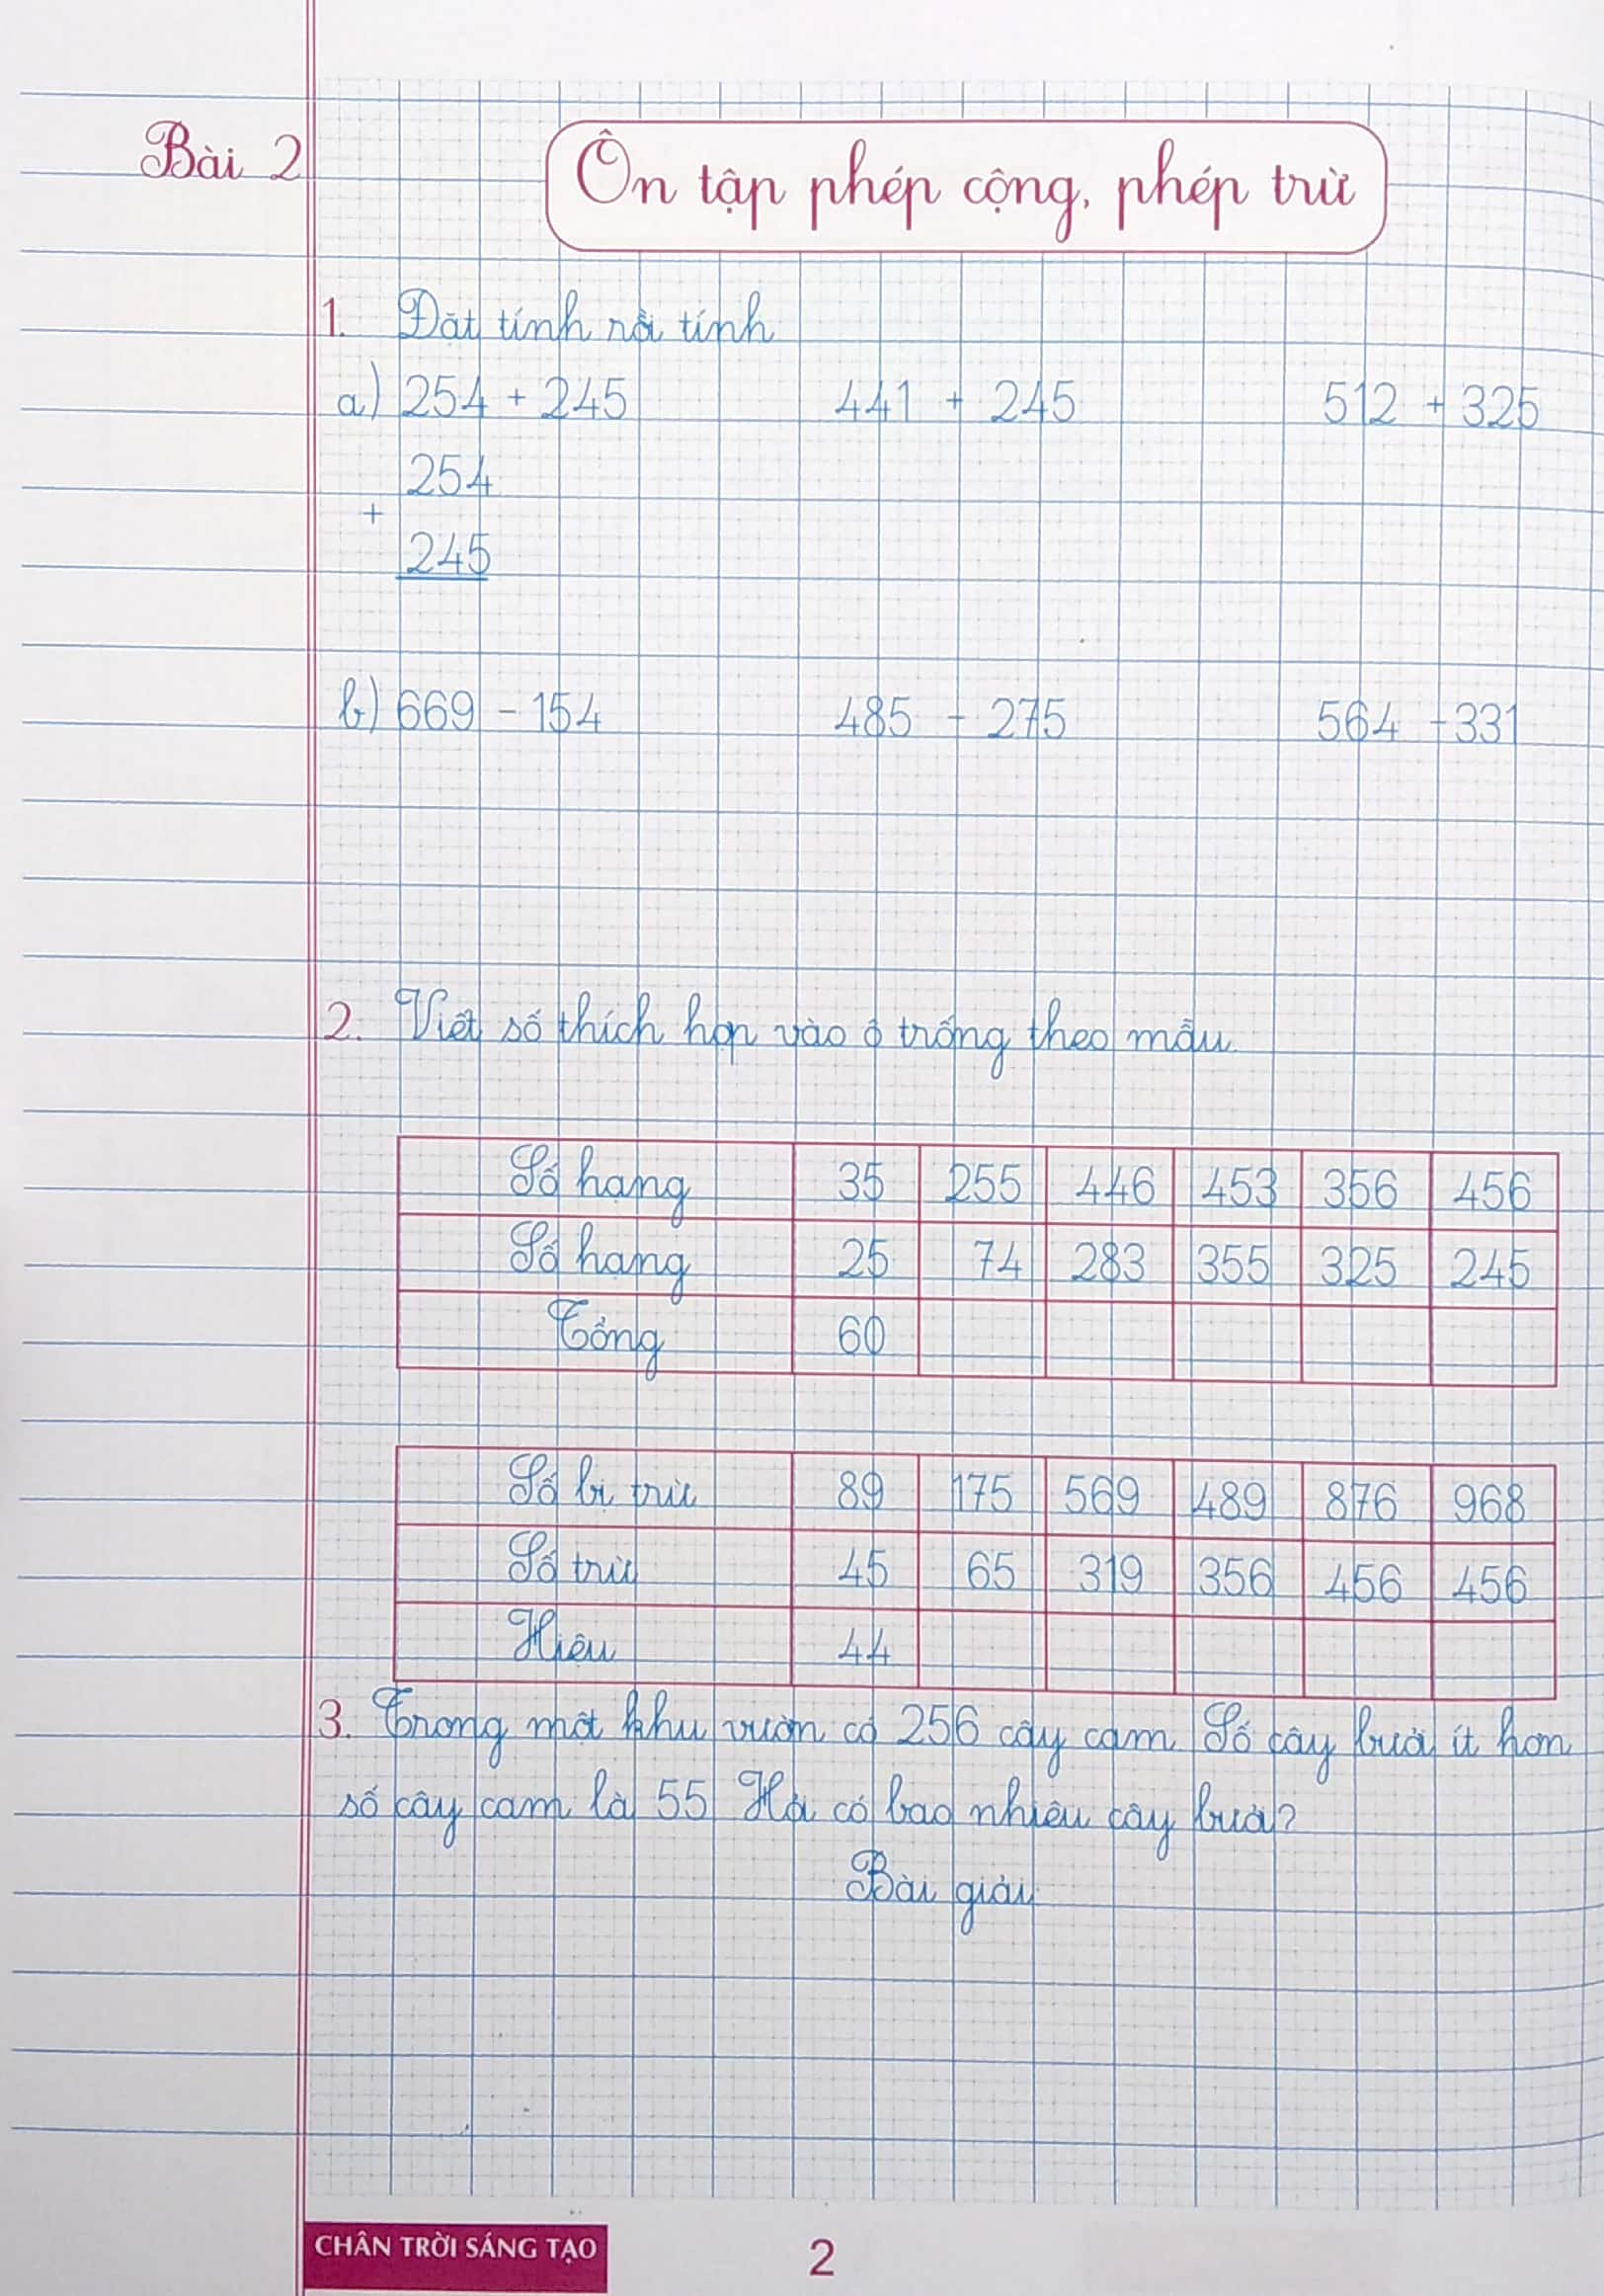 Bài 2
Ôn tập phép cộng, phép trừ
1. Đặt tính rồi tính
a) 254 + 245 441 + 245 512 + 325
254
+
245
b) 669 - 154 485 - 275 564 - 331
2. Viết số thích hợp vào ô trống theo mẫu.
Số hạng 35 255 446 453 356 456
Số hạng 25 74 283 355 325 245
Tổng 60
Số bị trừ 89 175 569 489 876 968
Số trừ 45 65 319 356 456 456
Hiệu 44
3. Trong một khu vườn có 256 cây cam. Số cây bưởi ít hơn
số cây cam là 55. Hỏi có bao nhiêu cây bưởi?
Bài giải
CHÂN TRỜI SÁNG TẠO 2